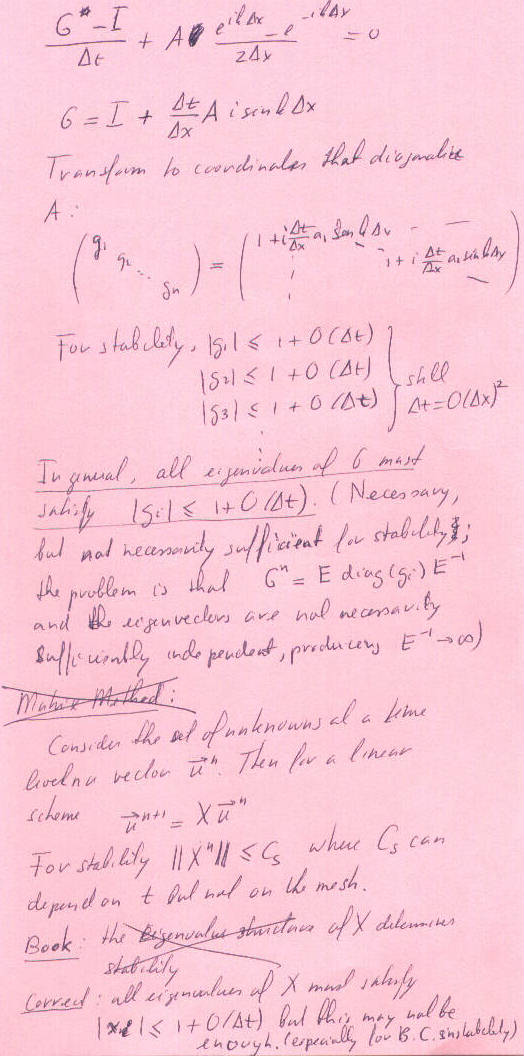 G* - I / Δt + A (e^{ikΔx} - e^{-ikΔx}) / 2Δx = 0
G = I + Δt/Δx A i sin kΔx
Transform to coordinates that diagonalize
A :
(g1 g2 ... gn) = (1 + i Δt/Δx a1 sin kΔx ... 1 + i Δt/Δx a2 sin kΔx)
For stability, |g1| ≤ 1 + O(Δt)
|g2| ≤ 1 + O(Δt)
|g3| ≤ 1 + O(Δt)
still
Δt = O(Δx)²
In general, all eigenvalues of G must
satisfy |gi| ≤ 1 + O(Δt). (Necessary,
but not necessarily sufficient for stability;
the problem is that Gⁿ = E diag(gi) E⁻¹
and the eigenvectors are not necessarily
sufficiently independent, producing E⁻¹ → ∞)
Matrix Method:
Consider the set of unknowns at a time
level n a vector u⃗ⁿ. Then for a linear
scheme u⃗ⁿ⁺¹ = X u⃗ⁿ
For stability ||Xⁿ|| ≤ Cs where Cs can
depend on t but not on the mesh.
Book : the eigenvalue structure of X determines
stability
Correct : all eigenvalues of X must satisfy
|xi| ≤ 1 + O(Δt) but this may not be
enough. (especially for B.C. instability)